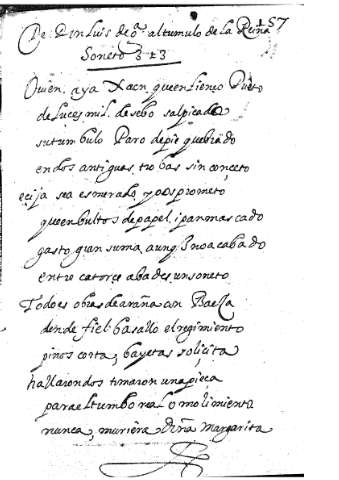 157
De Don Luis de gᵃ al tumulo de la Reina
Soneto 313
Quien, aya Xaen queen lienço Puso
de luces mil de sebo salpicado
su tumbulo Paro de pie quebrado
en dos antiguas trobas sin conceto
ecija sea esmerado y
queen bultos de papel i pan mascado
gasto gran suma aunq no a cabado
entre catorçe abades un soneto
Todo es obras de araña con Baeça
dende fiel basallo el regimiento
pinos corta, bayetas solicita
hallaron dos tomaron una pieça
para el tumbo real o molimiento
nunca, muriera Margarita